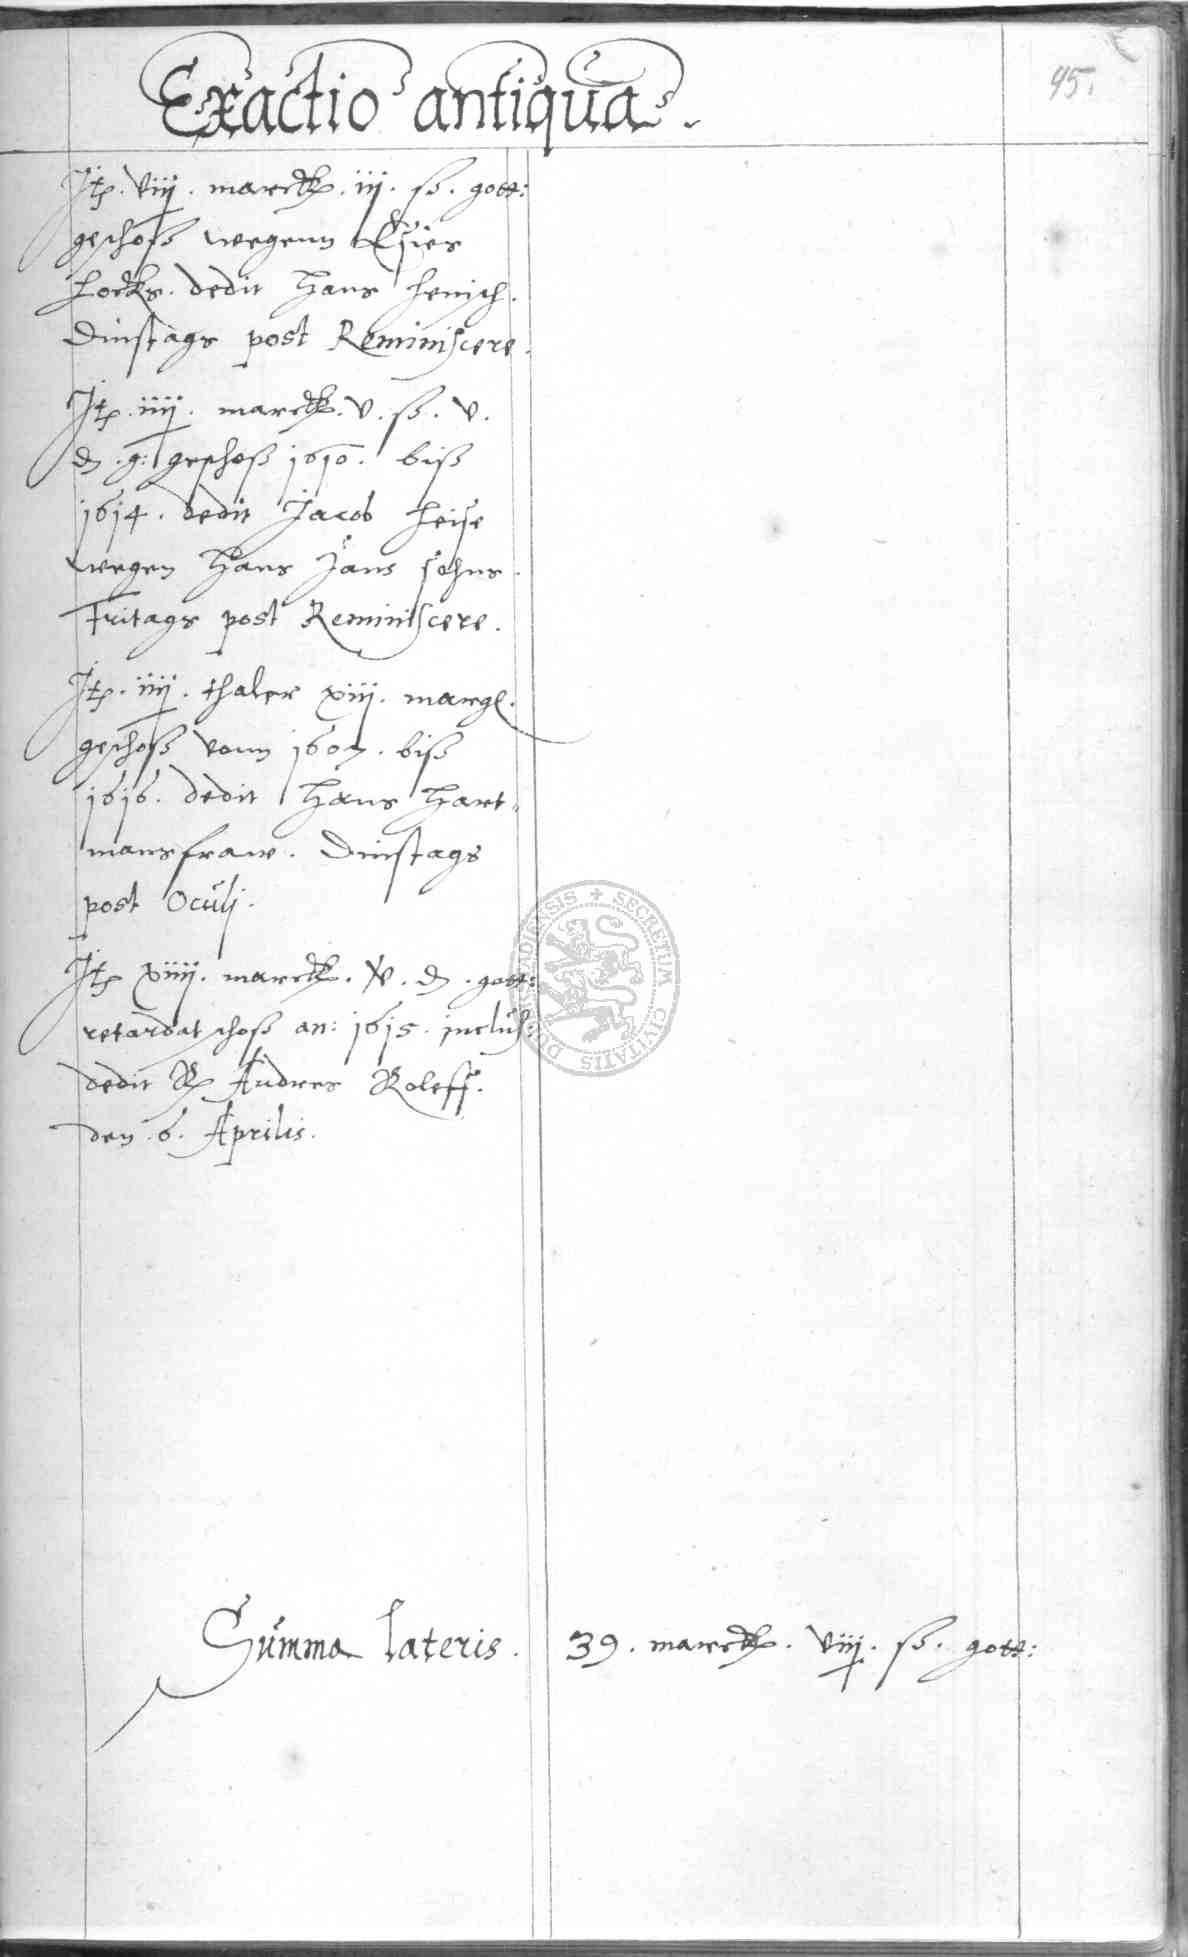 Exactio antiqua.
95.
Itp. viij. marck. iij. ß. gott:
geschoß wegenn
dedit Hans Henich.
Dinstags post Reminiscere.
Itp. iiij. marck. v. ß. v.
d. g: geschoß 1610. biß
1614. dedit Jacob Heise
wegen Hans Jans sohns.
Fritags post Reminiscere.
Itp. iiij. thaler xiij. margl.
geschoß vonn 1607. biß
1616. dedit Hans Hart-
mans fraw. Dinstags
post Oculi.
Itp xiiij. marck. v. d. gott:
retardat schoß an: 1615. inclus:
dedit Andres Roleff.
den .6. Aprilis.
Summa lateris. 39. marck. viij. ß. gott:
SECRETUM CIVITATIS